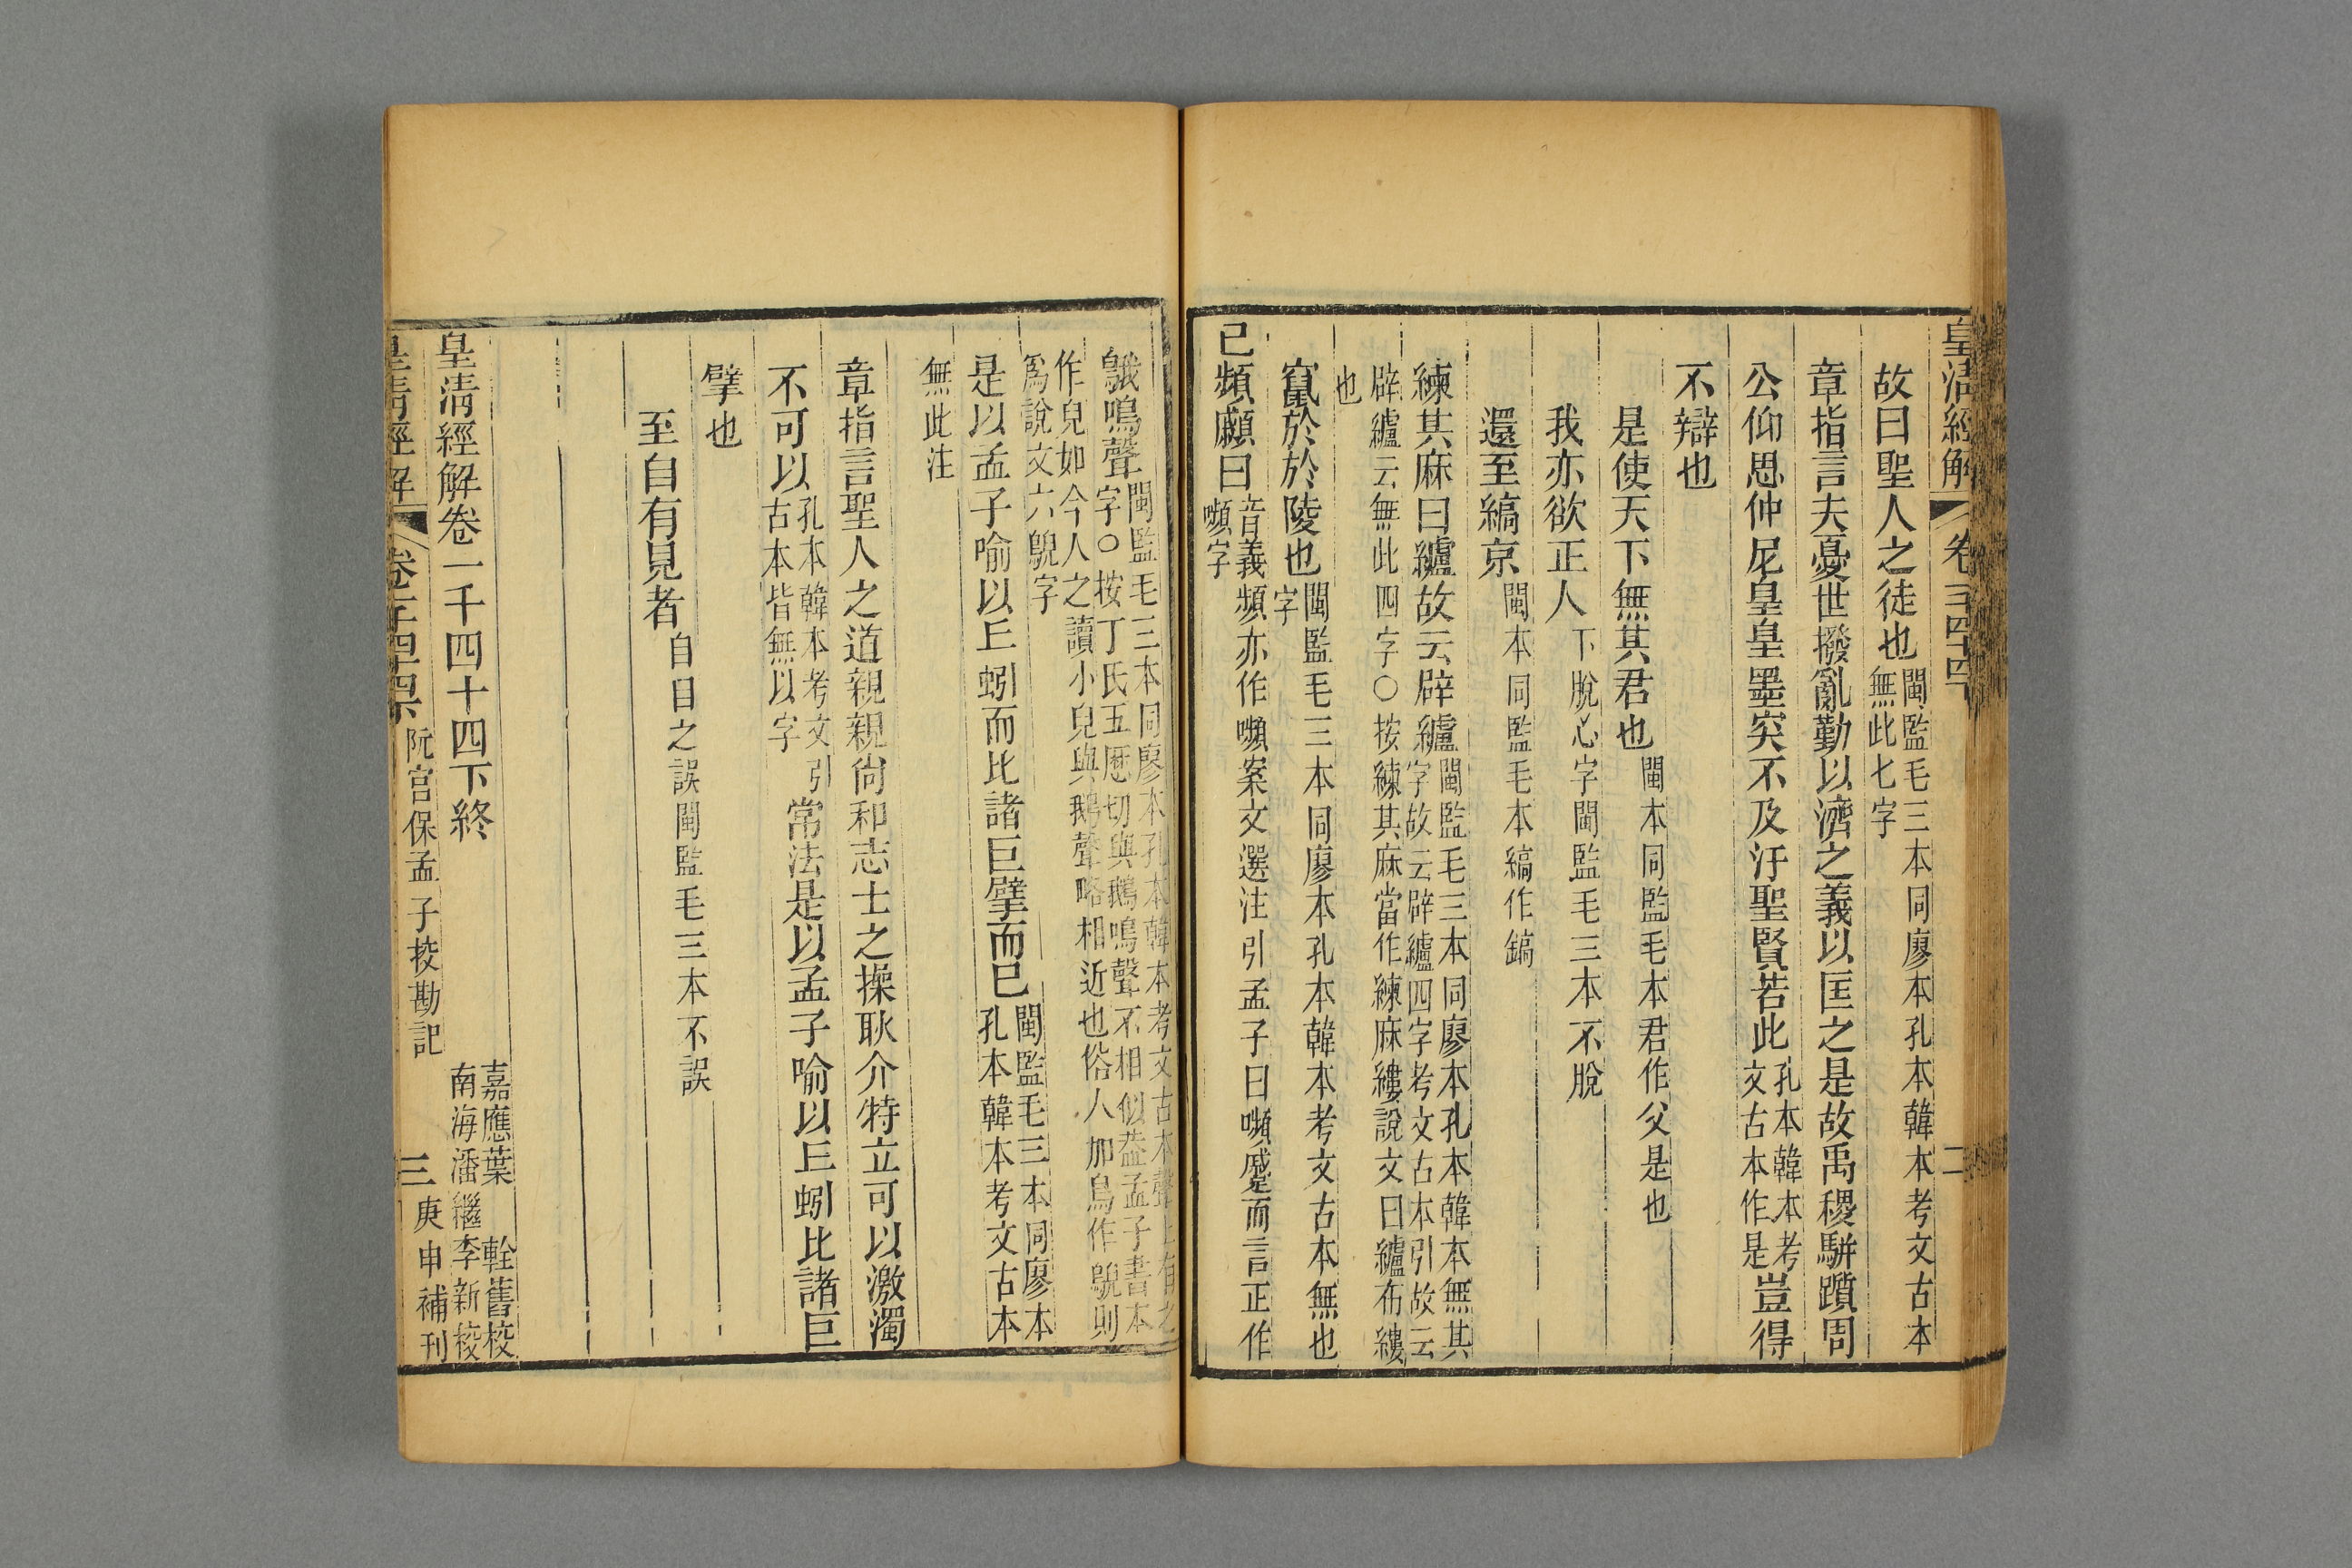 皇清經解
卷一千四十四
二
故曰聖人之徒也閩監毛三本同廖本孔本韓本考文古本
無此七字
章指言夫憂世撥亂勤以濟之義以匡之是故禹稷駢躓周
公仰思仲尼皇皇墨突不及汙聖賢若此孔本韓本考
文古本作是豈得
不辯也
是使天下無其君也閩本同監毛本君作父是也
我亦欲正人下脫心字閩監毛三本不脫
還至縞京閩本同監毛本縞作鎬
練其麻曰纑故云辟纑閩監毛三本同廖本孔本韓本無其
字故云辟纑四字考文古本引故云
辟纑云無此四字○按練其麻當作練麻縷說文曰纑布縷
也
竄於於陵也閩監毛三本同廖本孔本韓本考文古本無也
字
已頻顣曰音義頻亦作嚬案文選注引孟子曰嚬蹙而言正作
嚬字
鶃鳴聲閩監毛三本同廖本孔本韓本考文古本聲上有之
字○按丁氏五歴切與鵝鳴聲不相似葢孟子書本
作兒如今人之讀小兒與鵝聲略相近也俗人加鳥作鶃則
爲說文六鶃字
是以孟子喻以丘蚓而比諸巨擘而已閩監毛三本同廖本
孔本韓本考文古本
無此注
章指言聖人之道親親尙和志士之操耿介特立可以激濁
不可以孔本韓本考文引
古本皆無以字常法是以孟子喻以丘蚓比諸巨
擘也
至自有見者自目之誤閩監毛三本不誤
皇清經解卷一千四十四下終
嘉應葉軨舊校
南海潘繼李新校
皇清經解
卷一千四十四下
阮宫保孟子挍勘記
三
庚申補刊